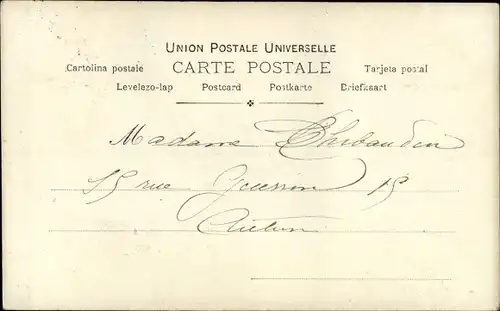 UNION POSTALE UNIVERSELLE
Cartolina postale CARTE POSTALE Tarjeta postal
Levelezo-lap Postcard Postkarte Briefkaart
Madame
15 rue 15
Autun